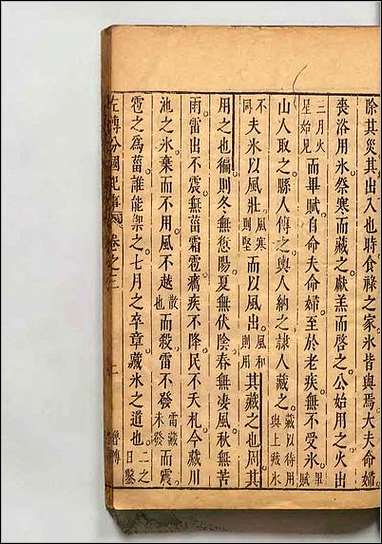 除其災其出入也時食祿之家氷皆與焉大夫命婦
喪浴用氷祭寒而藏之獻羔而啓之公始用之火出
三月火星始見而畢賦自命夫命婦至於老疾無不受氷畢賦
山人取之縣人傳之輿人納之隷人藏之藏以待用與上藏氷
不同夫氷以風壯風寒則堅而以風出風和則用其藏之也周其
用之也徧則冬無愆陽夏無伏陰春無凄風秋無苦
雨雷出不震無菑霜雹癘疾不降民不夭札今藏川
池之氷棄而不用風不越散也而殺雷不發雷藏未發而震
雹之爲菑誰能禦之七月之卒章藏氷之道也二之日鑿
左傳分國紀事 卷之三 二 魯傳